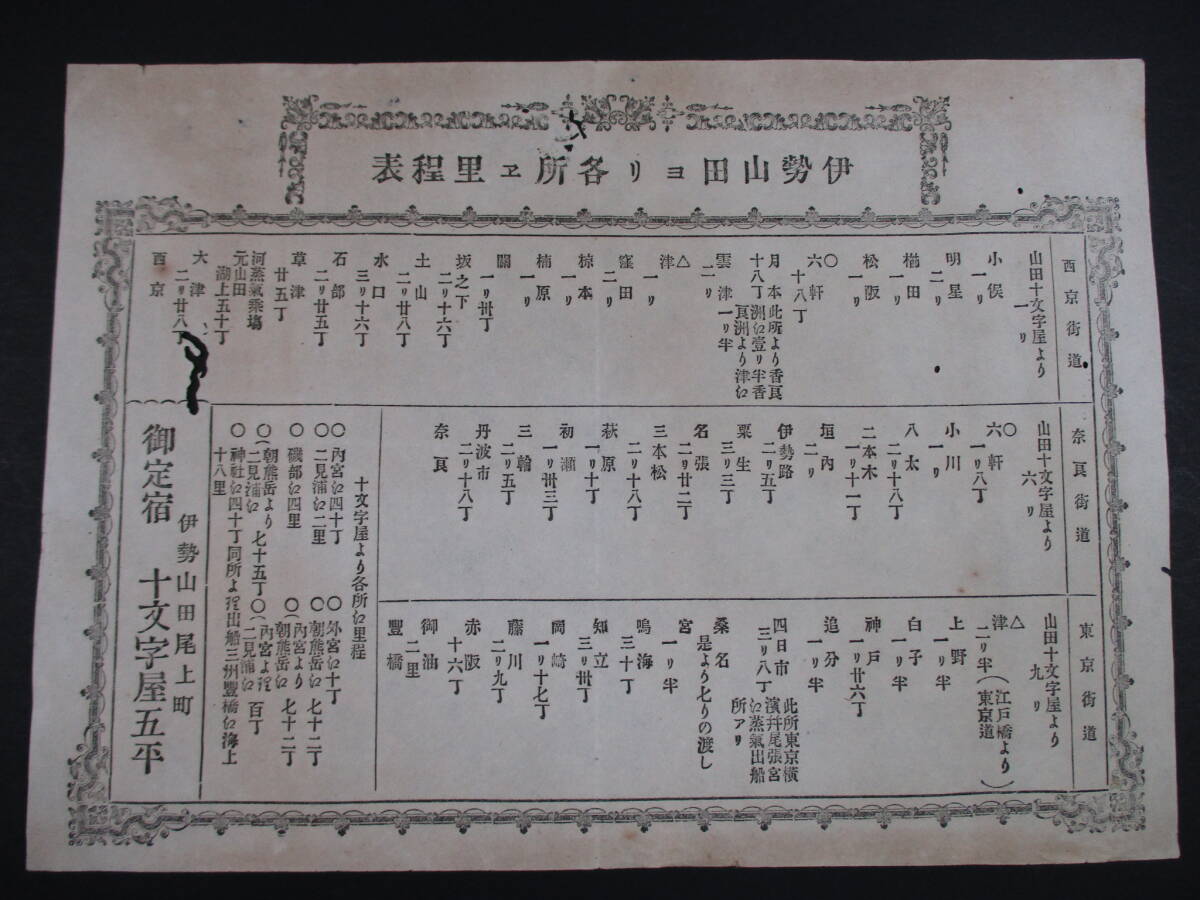 伊勢山田ヨリ各所ヱ里程表
西京街道
山田十文字屋より
一リ
小俣
一リ
明星
二リ
櫛田
一リ
松阪
一リ
〇
六軒
十八丁
月本 此所より香良
十八丁 洲江壹リ半香
良洲より津江
雲津 一リ半
二リ
△
津
一リ
窪田
二リ
椋本
一リ
楠原
一リ
關
一リ卅丁
坂之下
二リ十六丁
土山
二リ廿八丁
水口
三リ十六丁
石部
二リ廿五丁
草津
廿五丁
河蒸氣乗塲
元山田
湖上五十丁
大津
二リ廿八丁
西京
奈良街道
山田十文字屋より
六リ
〇
六軒
一リ八丁
小川
一リ
八太
二リ十八丁
二本木
一リ十一丁
垣内
二リ
伊勢路
二リ五丁
粟生
三リ三丁
名張
二リ廿二丁
三本松
二リ十八丁
萩原
一リ十丁
初瀬
一リ卅三丁
三輪
二リ五丁
丹波市
二リ十八丁
奈良
東京街道
山田十文字屋より
九リ
△
津(江戸橋より
二リ半 東京道)
上野
一リ半
白子
一リ半
神戸
一リ廿六丁
追分
一リ半
四日市 此所東京横
三リ八丁 濱并尾張宮
江蒸氣出船
所アリ
桑名
是より七りの渡し
宮
一リ半
鳴海
三十丁
知立
三リ卅丁
岡崎
一リ十七丁
藤川
二リ九丁
赤阪
十六丁
御油
二里
豐橋
十文字屋より各所江里程
〇内宮江四十丁 〇外宮江十丁
〇二見浦江二里 〇朝熊岳江 七十二丁
〇磯部江四里 〇(内宮より 朝熊岳江 七十二丁
〇(朝熊岳より 二見浦江 七十五丁 〇(内宮より 二見浦江 百丁
〇神社江四十丁同所より出船三州豐橋江海上
十八里
伊勢山田尾上町
御定宿 十文字屋五平